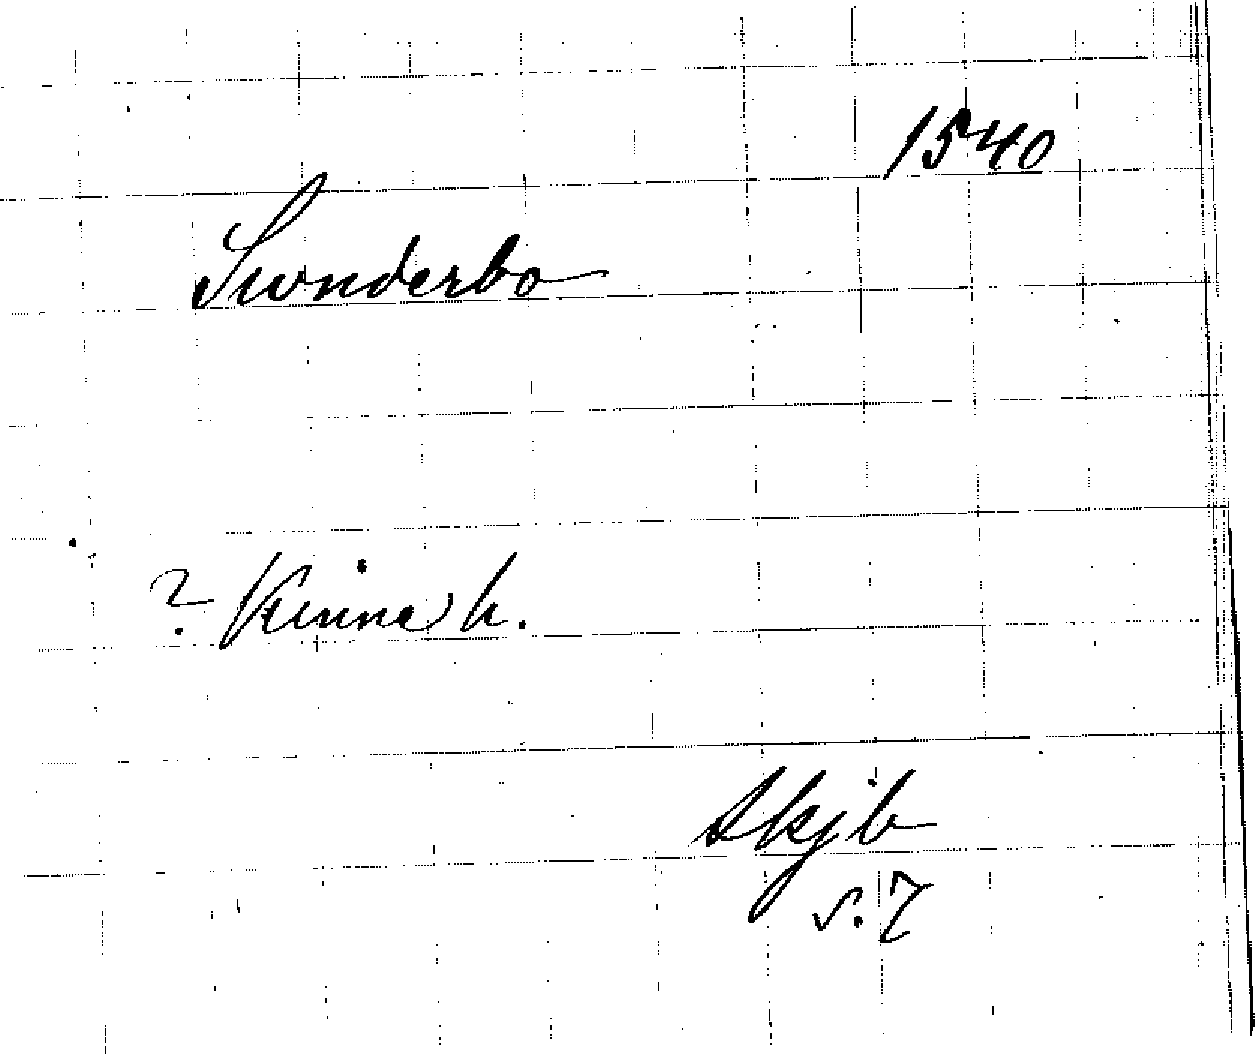 1540
Swnderbo
? Kinne h.
Skjb
s. 7